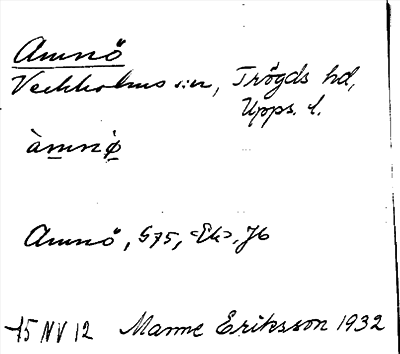 Amnö
Veckholms sn, Trögds hd,
Upps. l.
àmnø
Amnö, G75, <Ek>, Jb
15 NV 12 Manne Eriksson 1932